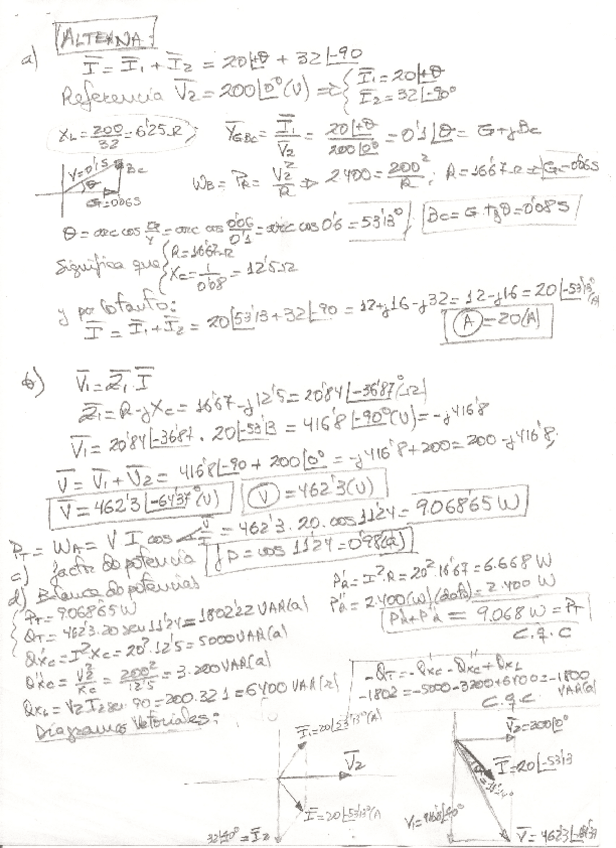 ALTERNA:
a) I = I1 + I2 = 20∠+θ + 32∠-90
Referencia V2 = 200∠0° (V) ⇒ { I1 = 20∠+θ
I2 = 32∠-90°
XL = 200/32 = 6'25 Ω; YGBc = I1/V2 = 20∠+θ/200∠0° = 0'1∠θ = G+jBc
Y=0'1S Bc
θ
G=0'06S
WB = PR = V2²/R ⇒ 2400 = 200²/R; R = 16'67 Ω ⇒ G = 0'06S
θ = arc cos G/Y = arc cos 0'06/0'1 = arc cos 0'6 = 53'13°; Bc = G tg θ = 0'08S
Significa que { R = 16'67 Ω
Xc = 1/0'08 = 12'5 Ω
y por lo tanto:
I = I1 + I2 = 20∠53'13 + 32∠-90 = 12+j16-j32 = 12-j16 = 20∠-53'13° (A)
A = 20 (A)
b) V1 = Z1 · I
Z1 = R-jXc = 16'67-j12'5 = 20'84∠-36'87° (Ω)
V1 = 20'84∠-36'87 · 20∠-53'13 = 416'8∠-90° (V) = -j416'8
V = V1 + V2 = 416'8∠-90 + 200∠0° = -j416'8+200 = 200-j416'8;
V = 462'3∠-64'37° (V) V = 462'3 (V)
PT = WA = V I cos V I = 462'3 · 20 · cos 11'24 = 9.068'65 W
c) factor de potencia fP = cos 11'24 = 0'98 (a)
d) Balance de potencias
PT = 9.068'65 W
QT = 462'3 · 20 sen 11'24 = 1802'22 VAR (a)
Q'xc = I² Xc = 20² · 12'5 = 5000 VAR (a)
Q''xc = V2²/Xc = 200²/12'5 = 3.200 VAR (a)
QXL = V2 I2 sen 90 = 200 · 32 · 1 = 6400 VAR (r)
P'R = I² · R = 20² · 16'67 = 6.668 W
P''R = 2.400 (W) (dato) = 2.400 W
P'R + P''R = 9.068 W = PT
C.q.c
-QT = -Q'xc - Q''xc + QXL
-1802 = -5000 - 3200 + 6400 = -1800 VAR (a)
C.q.c
Diagramas Vectoriales:
I1 = 20∠53'13° (A)
V2
I = 20∠-53'13° (A
32∠-90° = I2
V2 = 200∠0°
I = 20∠-53'13
V1 = 416'8∠-90°
V = 462'3∠-64'37